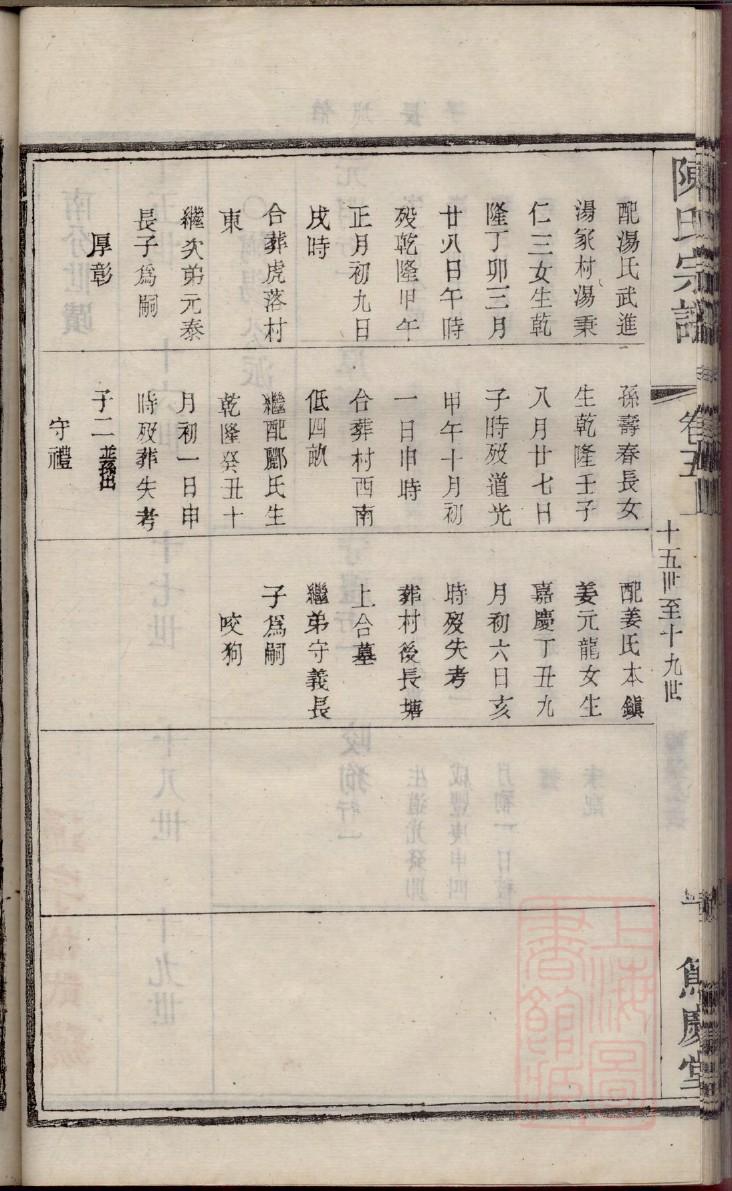 陳氏宗譜
卷五
十五世至十九世
篤慶堂
配湯氏武進
湯家村湯秉
仁三女生乾
隆丁卯三月
廿八日午時
歿乾隆甲午
正月初九日
戌時
合葬虎落村
東
繼次弟元泰
長子爲嗣
厚彰
孫壽春長女
生乾隆壬子
八月廿七日
子時歿道光
甲午十月初
一日申時
合葬村西南
低四畝
繼配酈氏生
乾隆癸丑十
月初一日申
時歿葬失考
子二並孫出
守禮
配姜氏本鎮
姜元龍女生
嘉慶丁丑九
月初六日亥
時歿失考
葬村後長塘
上合墓
繼弟守義長
子爲嗣
咬狗
上海圖書館藏